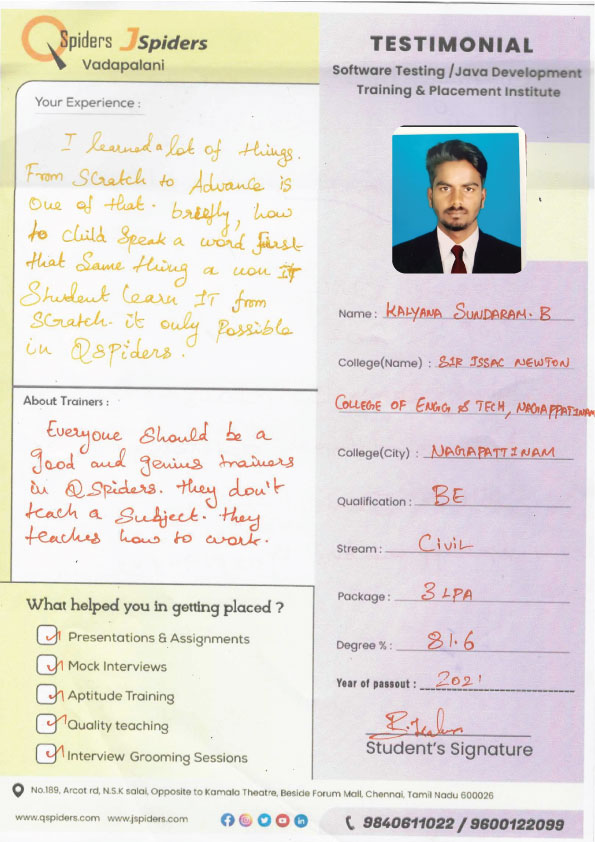 QSpiders JSpiders
Vadapalani
TESTIMONIAL
Software Testing /Java Development
Training & Placement Institute
Your Experience :
I learned a lot of things.
From Scratch to Advance is
one of that. briefly, how
to child speak a word first
that same thing a non IT
Student learn IT from
Scratch. it only possible
in QSpiders.
About Trainers :
Everyone should be a
good and genius trainers
in QSpiders. they don't
teach a subject. they
teaches how to work.
What helped you in getting placed ?
Presentations & Assignments
Mock Interviews
Aptitude Training
Quality teaching
Interview Grooming Sessions
Name : KALYANA SUNDARAM. B
College(Name) : SIR ISSAC NEWTON
COLLEGE OF ENGG & TECH, NAGAPPATINAM
College(City) : NAGAPATTINAM
Qualification : BE
Stream : CIVIL
Package : 3 LPA
Degree % : 81.6
Year of passout : 2021
Student's Signature
No.189, Arcot rd, N.S.K salai, Opposite to Kamala Theatre, Beside Forum Mall, Chennai, Tamil Nadu 600026
www.qspiders.com www.jspiders.com
9840611022 / 9600122099